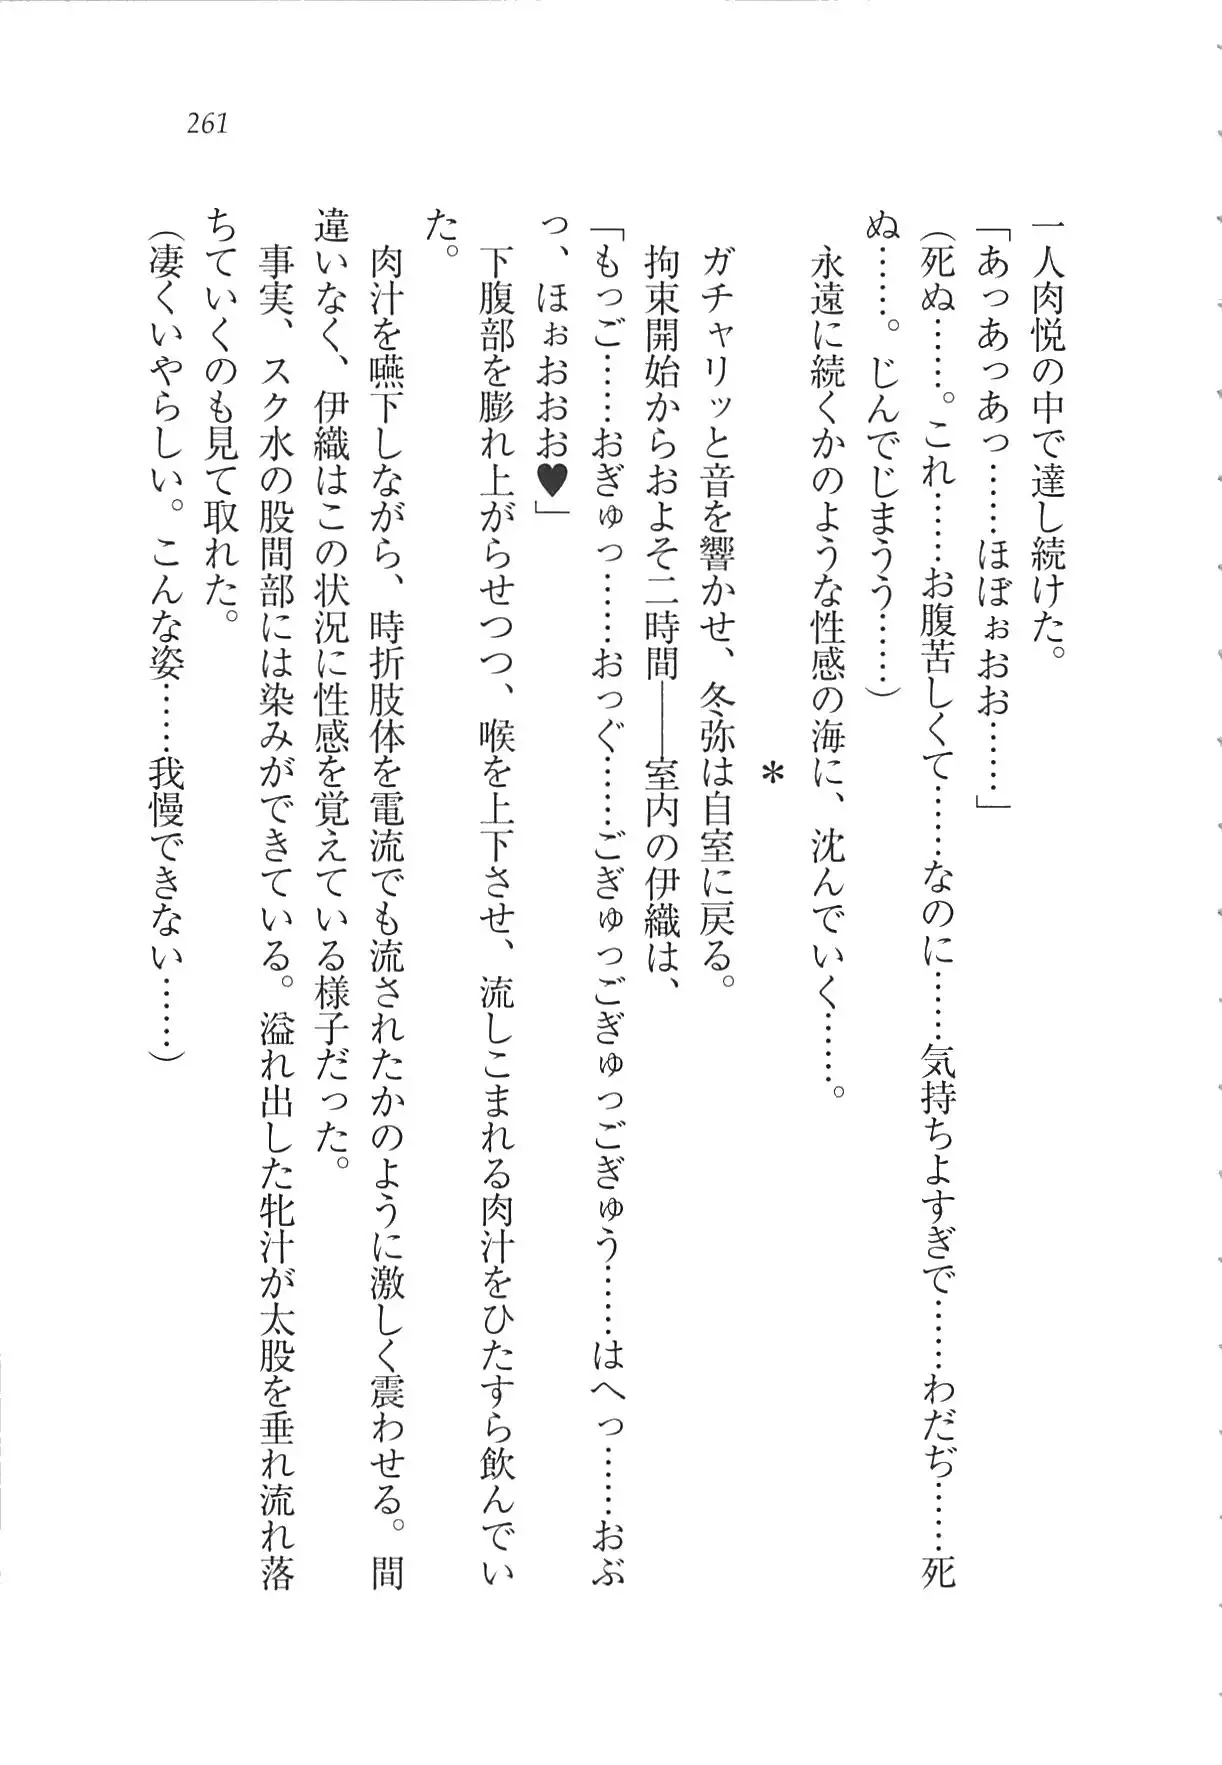 261
一人肉悦の中で達し続けた。
「あっあっあっ……ほぼぉおお……」
（死ぬ……。これ……お腹苦しくて……なのに……気持ちよすぎで……わだぢ……死
ぬ……。じんでじまうう……）
永遠に続くかのような性感の海に、沈んでいく……。
＊
ガチャリッと音を響かせ、冬弥は自室に戻る。
拘束開始からおよそ二時間――室内の伊織は、
「もっご……おぎゅっ……おっぐ……ごぎゅっごぎゅっごぎゅう……はへっ……おぶ
っ、ほぉおおお♥」
下腹部を膨れ上がらせつつ、喉を上下させ、流しこまれる肉汁をひたすら飲んでい
た。
肉汁を嚥下しながら、時折肢体を電流でも流されたかのように激しく震わせる。間
違いなく、伊織はこの状況に性感を覚えている様子だった。
事実、スク水の股間部には染みができている。溢れ出した牝汁が太股を垂れ流れ落
ちていくのも見て取れた。
（凄くいやらしい。こんな姿……我慢できない……）